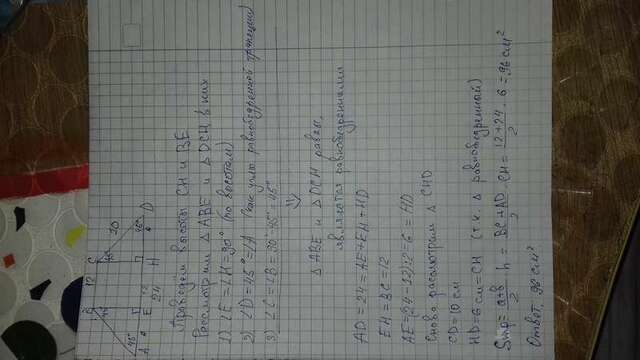 B 12 C
45° 45° 10
45° 45°
A E H D
12
24
Проведем высоты CH и BE
Рассмотрим △ABE и △DCH, в них
1) ∠E = ∠H = 90° (по высотам)
2) ∠D = 45° = ∠A (как углы равнобедренной трапеции)
3) ∠C = ∠B = 90° - 45° = 45°
⇓
△ABE и △DCH равны,
являются равнобедренными
AD = 24 = AE + EH + HD
EH = BC = 12
AE = (24 - 12) : 2 = 6 = HD
Снова расмотрим △CHD
CD = 10 см
HD = 6 см = CH (т.к. △ равнобедренный)
Sтр = a+b/2 · h = BC + AD/2 · CH = 12+24/2 · 6 = 96 см²
Ответ: 96 см²